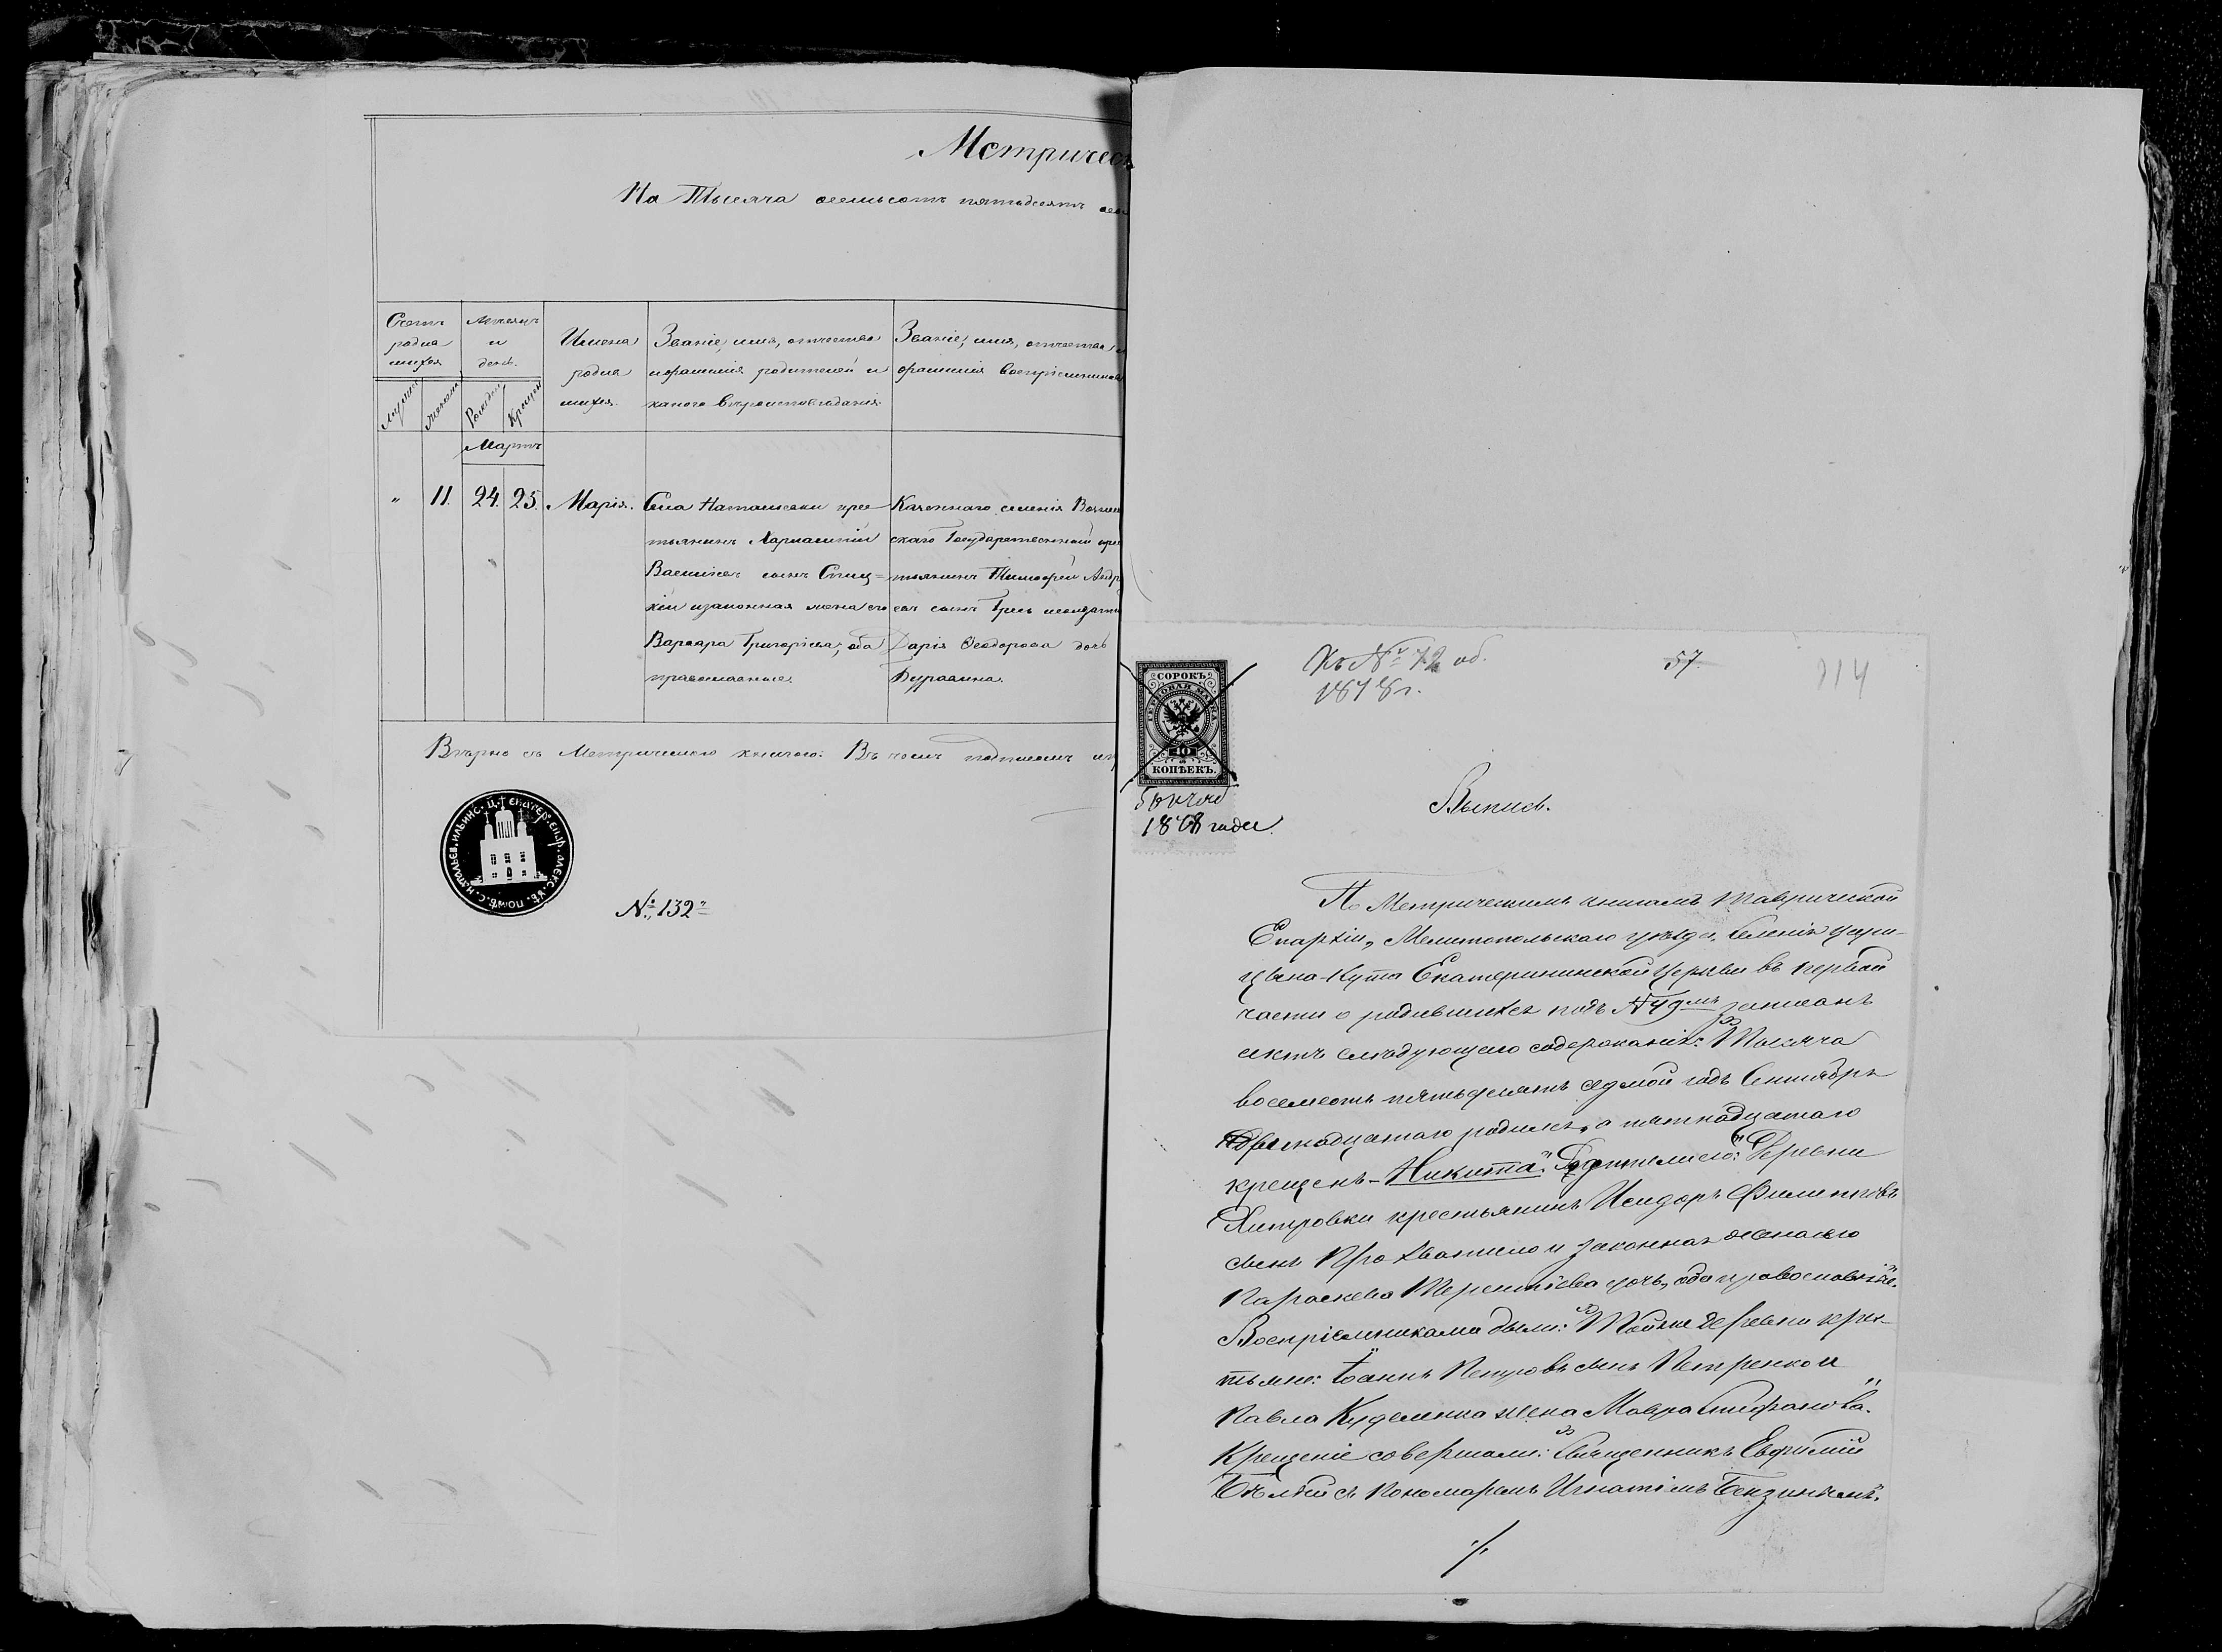 Метричес
На Тысяча осемьсотъ пятьдесятъ
Счетъ родив шихся
Мѣсяцъ и день.
Имена родив шихся.
Званіе, имя, отчество и фамилія родителей и какого вѣроисповѣданія.
Званіе, имя, отчество и фамилія воспріемниковъ
Рожден Крещен
Мартъ
" 11. 24. 25. Марія.
Села Натальевки крес
тьянинъ
Василіевъ сынъ
законная жена его
Варвара Григоріева, оба
православные.
Казеннаго селенія
скаго Государственный крес
тьянинъ Тимофей Андр
евъ сынъ
Дарія Ѳеодорова дочь
Вѣрно съ Метрическою книгою: Въ чемъ подписомъ
№ 132
СОРОКЪ
ГЕРБОВАЯ МАРКА
40
КОПѢЕКЪ.
1878 года.
Къ № 72 об.
1878 г.
57.
314
Выпись.
По Метрическимъ книгамъ Таврической
Епархіи, Мелитопольскаго уѣзда, Селенія Цари-
цына-Кута Екатерининской Церкви въ первой
части о родившихся подъ № 49мъ записанъ
актъ слѣдующаго содержанія: Тысяча
восемсотъ пятьдесятъ седмой годъ Сентября
двенадцатаго родился, а пятнадцатаго
крещенъ – Никита. Родители его: Деревни
Хитровки крестьянинъ Исидоръ Филиповъ
сынъ и законная жена его
Параскева Терентіева дочь, оба православные.
Воспріемниками были: Той же деревни крес-
тьяне: Іоаннъ Петровъ сынъ Петренко и
Павла Куделенка жена Мавра Стефанова.
Крещеніе совершали: Священникъ Евфимій
Бѣлый съ Пономаремъ Игнатіемъ